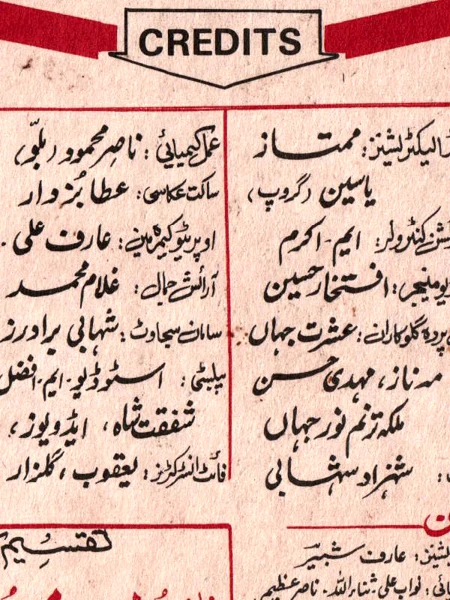 CREDITS
الیکٹریشنز: ممتاز
یاسین (گروپ)،
کنٹرولر: ایم۔ اکرم
منیجر: افتخار حسین
پردہ گلوکاران: عشرت جہاں
مہ ناز، مہدی حسن
ملکہ ترنم نور جہاں
شہزاد شہابی
عمل کیمیائی: ناصر محمود (بلّو)،
ساکت عکاسی: عطا بُزدار
اوپریٹو کیمرہ مین: عارف علی۔
آرائش جمال: غلام محمد
سامان سجاوٹ: شہابی برادرز
پبلسٹی: اسٹوڈیو۔ ایم۔ افضل
شفقت شاہ، ایڈویوز،
فائٹ انسٹرکٹرز: یعقوب، گلزار
عارف شبیر
نواب علی۔ ثناء اللہ۔ ناصر عظیم
تقسیم